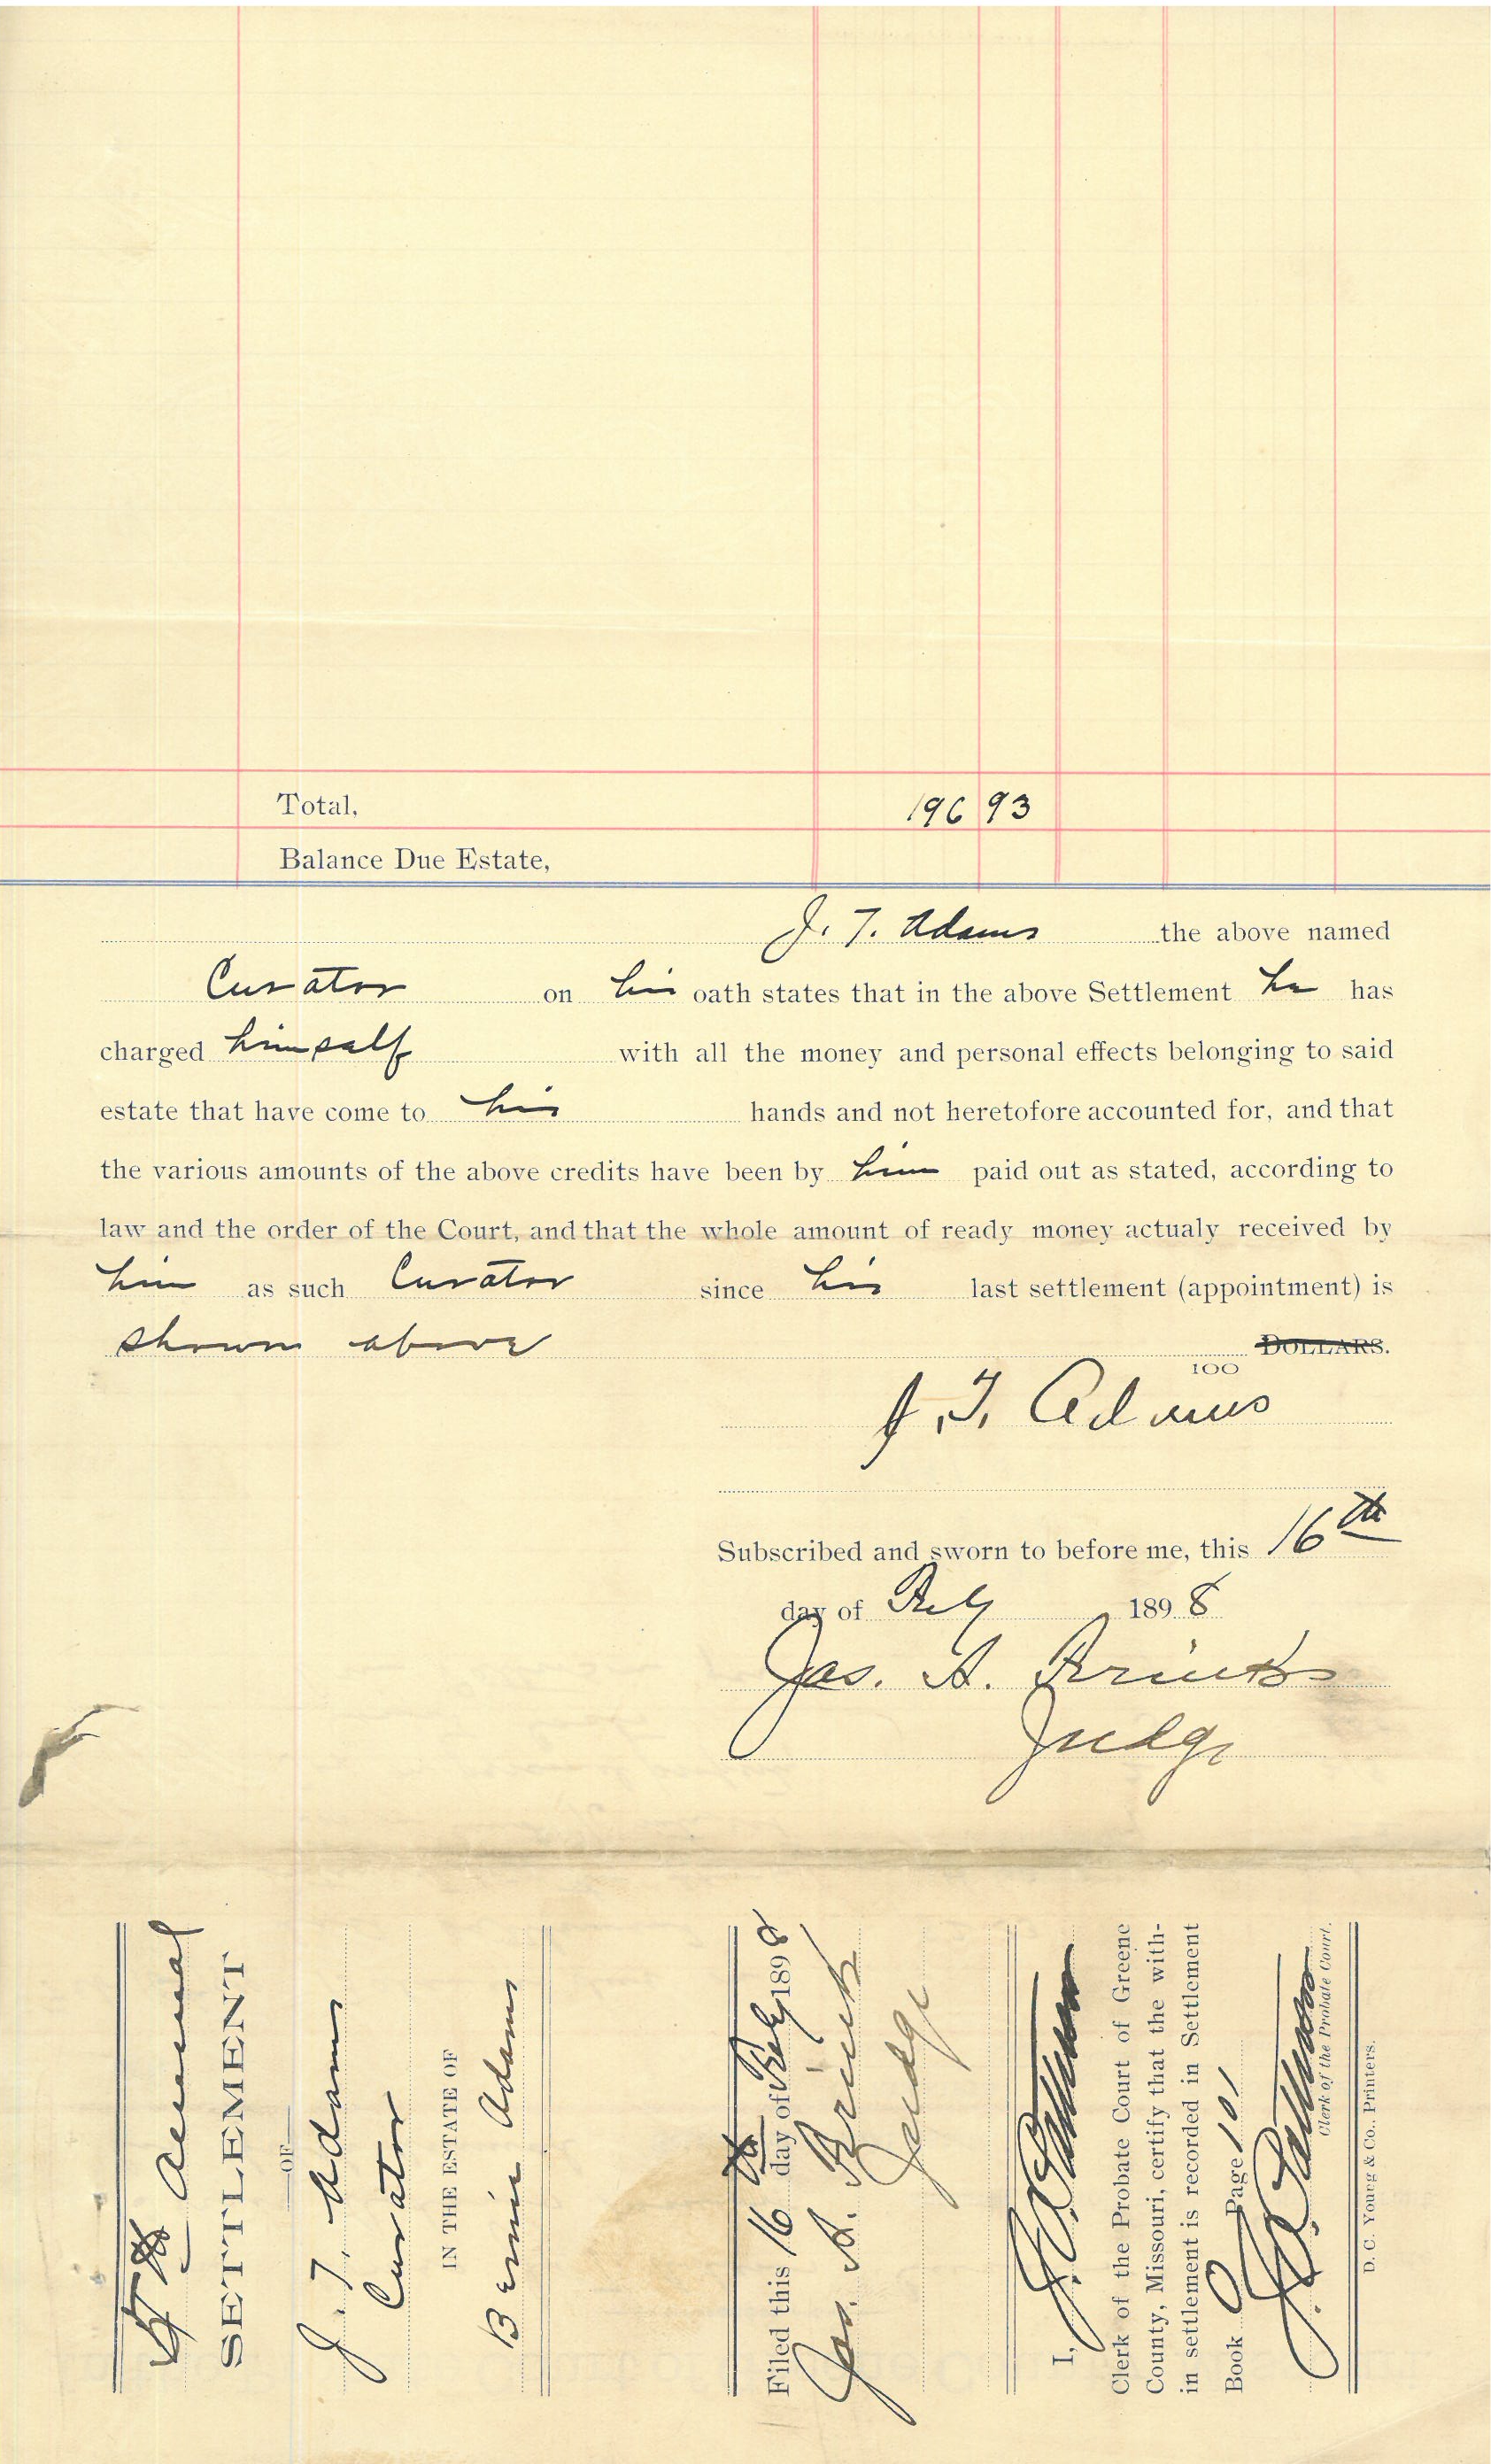 Total, 196 93
Balance Due Estate,
J. T. Adams the above named
Curator on his oath states that in the above Settlement he has
charged himself with all the money and personal effects belonging to said
estate that have come to his hands and not heretofore accounted for, and that
the various amounts of the above credits have been by him paid out as stated, according to
law and the order of the Court, and that the whole amount of ready money actualy received by
him as such Curator since his last settlement (appointment) is
shown above DOLLARS.
100
J. T. Adams
Subscribed and sworn to before me, this 16th
day of Feby 1898
Jas. A.
Judge
Annual
SETTLEMENT
OF
J. T. Adams
Curator
IN THE ESTATE OF
Adams
Filed this 16th day of Feby 1898
Jas. A.
Judge
I,
Clerk of the Probate Court of Greene
County, Missouri, certify that the with-
in settlement is recorded in Settlement
Book O Page 101
Clerk of the Probate Court.
D. C. Young & Co., Printers.